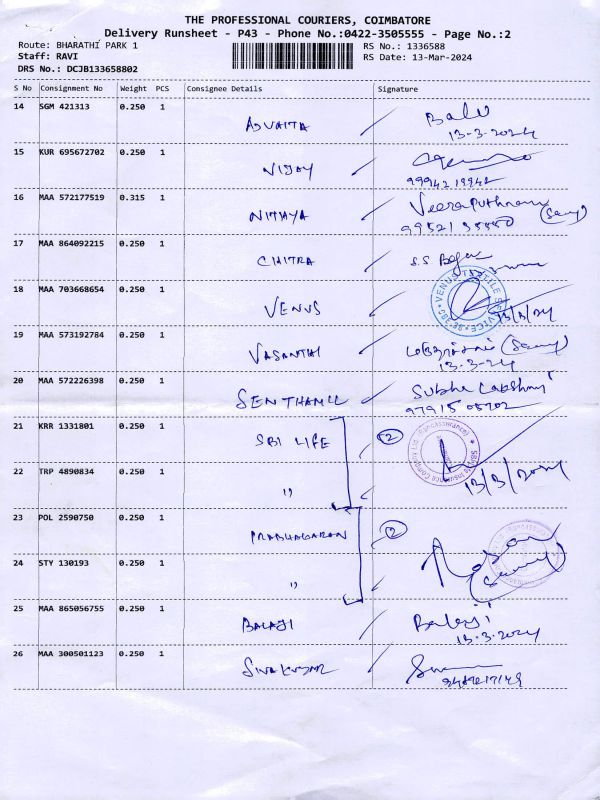 THE PROFESSIONAL COURIERS, COIMBATORE
Delivery Runsheet - P43 - Phone No.:0422-3505555 - Page No.:2
Route: BHARATHI PARK 1 RS No.: 1336588
Staff: RAVI RS Date: 13-Mar-2024
DRS No.: DCJB133658802
S No Consignment No Weight PCS Consignee Details Signature
14 SGM 421313 0.250 1 ADVAITA Balu
13-3-2024
15 KUR 695672702 0.250 1 VIJAY
9994219942
16 MAA 572177519 0.315 1 NITHYA
17 MAA 864092215 0.250 1 CHITRA S.S
18 MAA 703668654 0.250 1 VENUS VENUS TEXTILE SERVICE 13/3/24
19 MAA 573192784 0.250 1 VASANTHI
13-3-24
20 MAA 572226398 0.250 1 SENTHAMIL Subha Lakshmi
21 KRR 1331801 0.250 1 SBI LIFE 2
22 TRP 4890834 0.250 1 " 13/3/2024
23 POL 2590750 0.250 1 PRABHAGARAN 2
24 STY 130193 0.250 1 "
25 MAA 865056755 0.250 1 BALAJI Balaji
13-3-2024
26 MAA 300501123 0.250 1 SIVAKUMAR